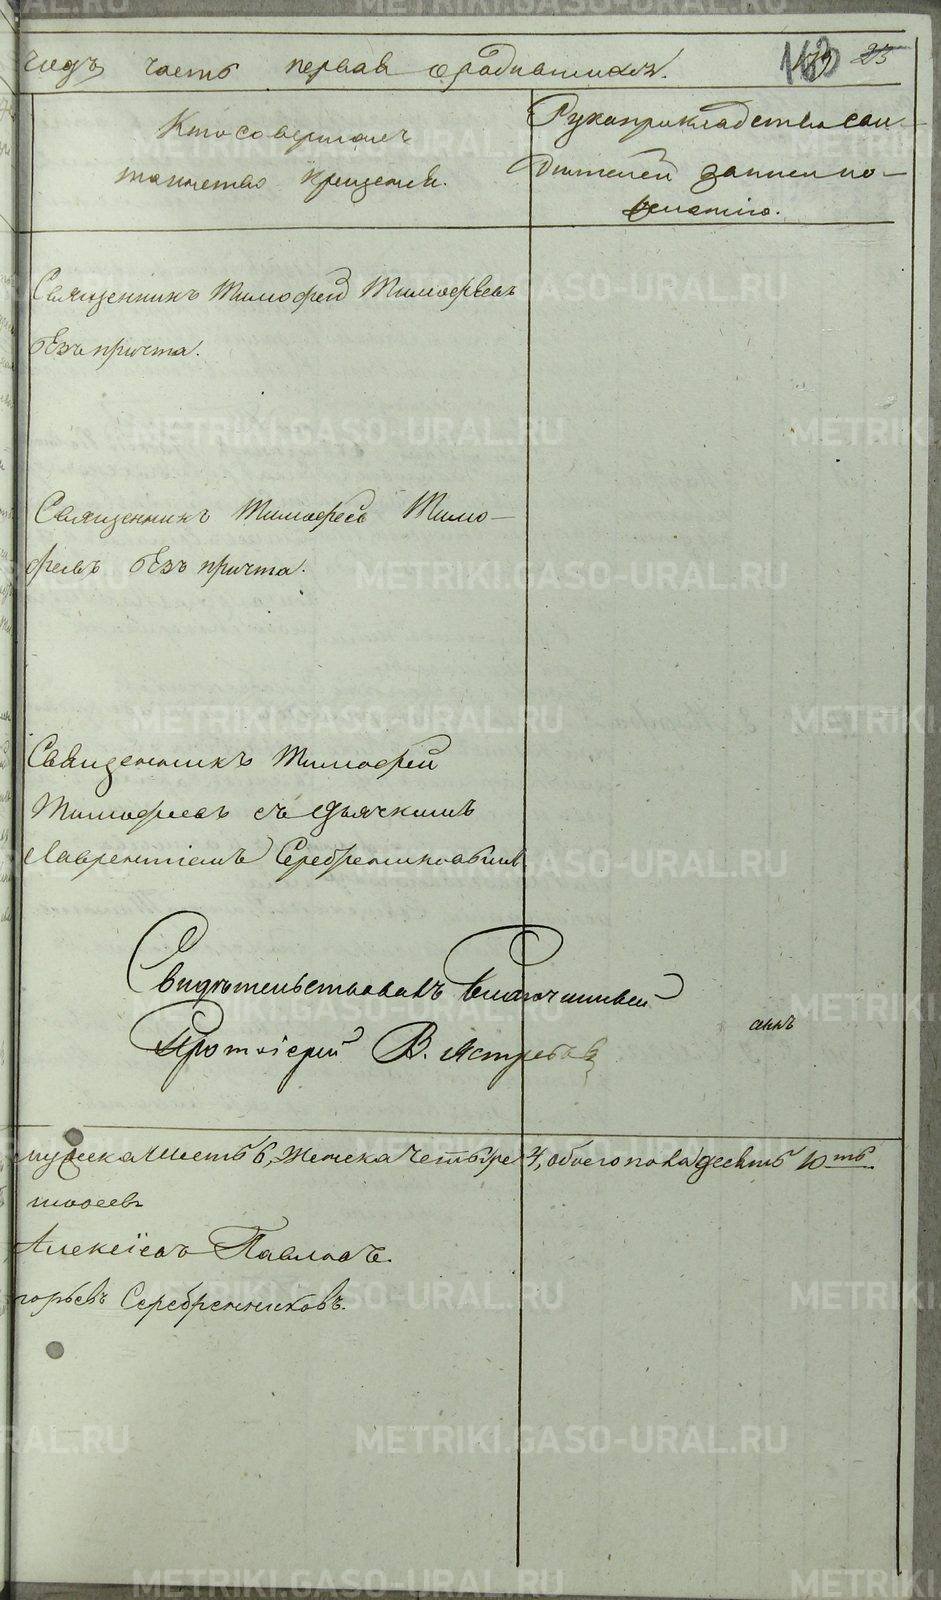 годъ часть первая о родившихся.
25
Кто совершалъ
таинство крещенія.
Рукоприкладство сви-
дѣтелей записи по
желанію.
Священникъ Тимофей Тимофѣевъ
безъ причта.
Священникъ Тимофей Тимо-
фѣевъ безъ причта.
Священникъ Тимофей
Тимофѣевъ съ дьячкомъ
Лаврентіемъ Серебрениковымъ
Свидѣтельствовалъ Благочинный
Протоіерей В. Ястребовъ
мужска шесть 6, женска четыре 4, обоего пола десять 10ть
мофеевъ
Алексѣевъ Павловъ.
горьевъ Серебренниковъ.
METRIKI.GASO-URAL.RU